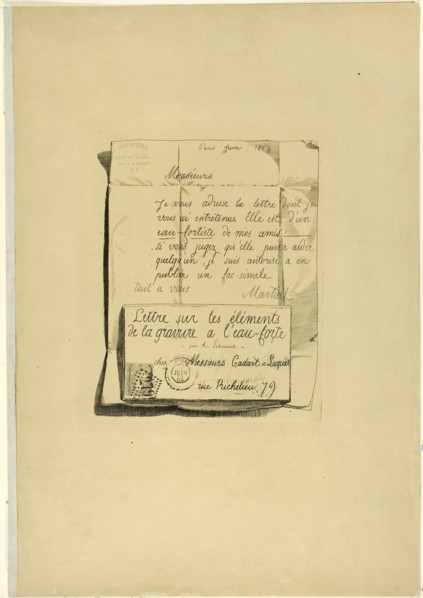 Paris Juin
Messieurs
Je vous adresse la lettre dont je
vous ai entretenus Elle est d'un
eau-fortiste de mes amis!
si vous jugez qu'elle puisse aider
quelqu'un, je suis autorisé a en
publier un fac simile
tout a vous
Martial
Lettre sur les éléments
de la gravure a l'eau-forte
chez Messieurs Cadart et Luquet
rue Richelieu, 79